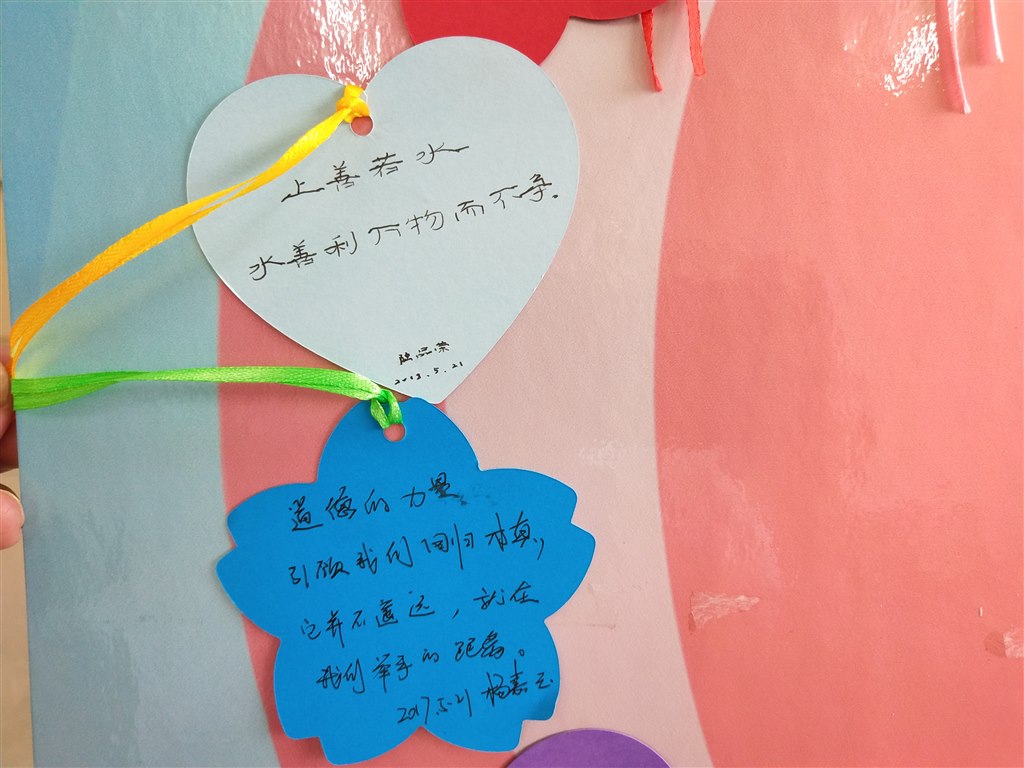 上善若水
水善利万物而不争。
陆品荣
2018.5.21
道德的力量
引领我们回归本真,
它并不遥远，就在
我们举手的距离。
2017.5.21 杨嘉玉